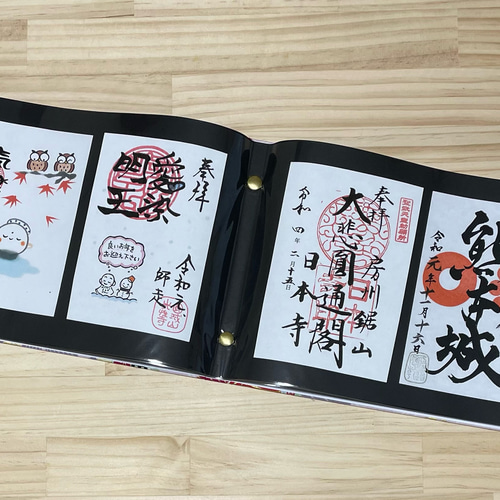 奉拝
愛染
明王
良いお年を
お迎え下さい
令和元、
師走
聖武天皇勅願所
奉拝
房州鋸山
大悲圓通閣
日本寺
令和四年二月十五日
熊本城
令和元年十一月十六日